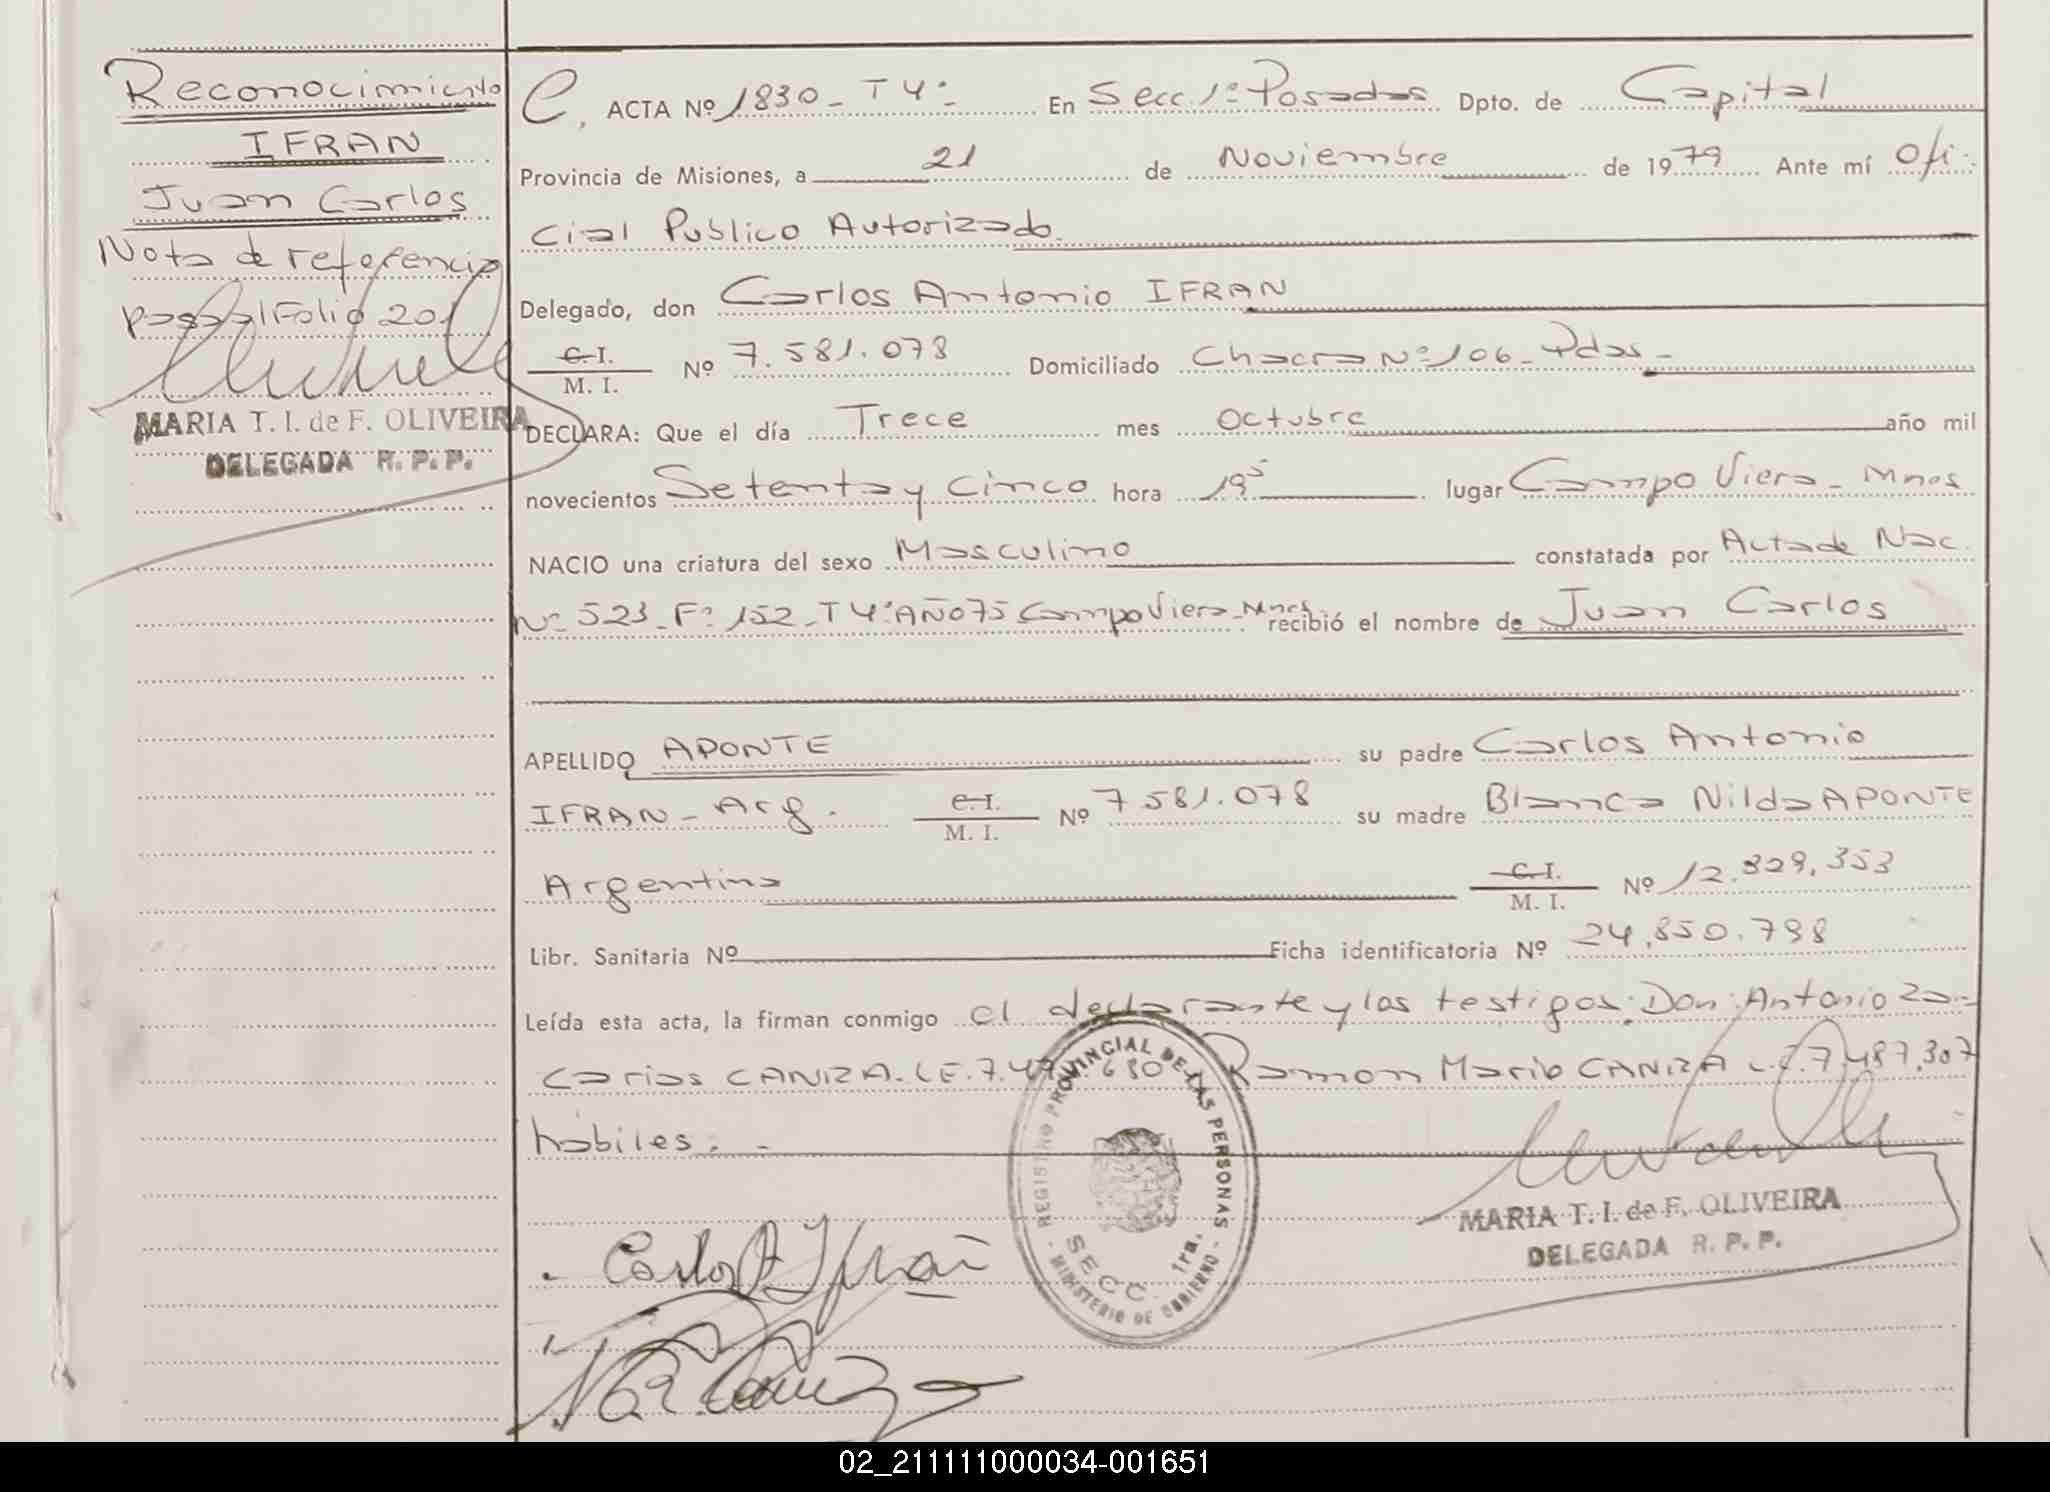 Reconocimiento
IFRAN
Juan Carlos
Nota de referencia
pasa al Folio 201
MARIA T. I. de F. OLIVEIRA
DELEGADA R. P. P.
C, ACTA Nº 1830 - T 4º - En Secc. 1º Posadas Dpto. de Capital
Provincia de Misiones, a 21 de Noviembre de 1979 Ante mí Ofi-
cial Publico Autorizado.
Delegado, don Carlos Antonio IFRAN
C. I.
M. I. Nº 7.581.078 Domiciliado Chacra Nº 106 - Pdas -
DECLARA: Que el día Trece mes Octubre año mil
novecientos Setenta y Cinco hora 19⁵ lugar Campo Viera - Mnes
NACIO una criatura del sexo Masculino constatada por Acta de Nac.
Nº 523 - Fº 152 - T 4º AÑO 75 Campo Viera - Mnes recibió el nombre de Juan Carlos
APELLIDO APONTE su padre Carlos Antonio
IFRAN - Arg. C. I.
M. I. Nº 7581.078 su madre Blanca Nilda APONTE
Argentina C. I.
M. I. Nº 12.329,353
Libr. Sanitaria Nº Ficha identificatoria Nº 24,850.798
Leída esta acta, la firman conmigo el declarante y los testigos: Don: Antonio Za-
carias CANIZA - LE. 7.47 680 Ramon Mario CANIZA L.E. 7.487,307
hábiles. -
REGISTRO PROVINCIAL DE LAS PERSONAS - MINISTERIO DE GOBIERNO -
SECC. 1ra.
Carlos A Ifrán
MARIA T. I. de F. OLIVEIRA
DELEGADA R. P. P.
02_211111000034-001651